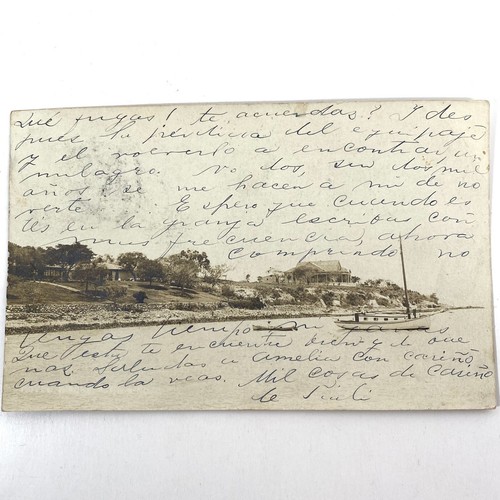 Qué fugas! te acuerdas? Y des
pues la pérdida del equipaje
y el volverlo a encontrar, un
milagro. No dos, sin dos mil
años se me hacen a mi de no
verte. Espero que cuando es
tés en la granja escribas con
mas frecuencia, ahora
comprendo no
tengas tiempo
Que esta te encuentre bien y lo que
nas. Saludas a Amelia con cariño
cuando la veas. Mil cosas de cariño
de